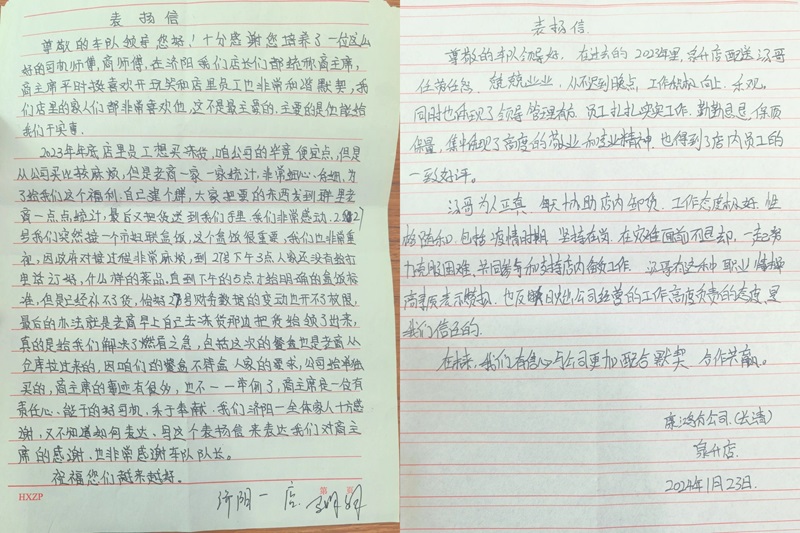 表扬信
尊敬的车队领导您好！十分感谢您培养了一位这么
好的司机师傅，商师傅，在济阳我们店长们都统称商主席，
商主席平时挺喜欢开玩笑和店里员工也非常和谐默契，我
们店里的家人们都非常喜欢他，这不是最主要的，主要的是他能给
我们干实事。
2023年年底店里员工想买冻货，咱公司的毕竟便宜点，但是
从公司买比较麻烦，但是老商一家一家统计，非常细心、仔细，为
了给我们这个福利，自己建个群，大家把要的东西发到群里老
商一点点统计，最后又把货送到我们店里，我们非常感动，
号我们突然接一个市妇联盒饭，这个盒饭很重要，我们也非常重
视，因政府对接过程非常麻烦，到27号下午3点人家还没有给打
电话订好，什么样的菜品，直到下午的5点才给明确的盒饭标
准，但是已经补不了货，
最后的办法就是老商早上自己去冻货那边把货给领了出来，
真的是给我们解决了燃眉之急，包括这次的餐盒也是老商从
仓库拉过来的，因咱们的餐盒不符合人家的要求，公司给单独
买的，商主席的事迹有很多，也不一一举例了，商主席是一位有
责任心、能干的好司机，乐于奉献，我们济阳一全体家人十分感
谢，又不知道如何表达，写这个表扬信来表达我们对商主
席的感谢，也非常感谢车队队长。
祝福您们越来越好。
HXZP
济阳一店
表扬信
尊敬的车队领导好，在过去的2023年里，泉升店配送冯哥
任劳任怨，兢兢业业，从不迟到晚点，工作积极向上、乐观。
同时也体现了领导管理有方，员工扎扎实实工作，勤勤恳恳，保质
保量，集中体现了高度的敬业和专业精神，也得到了店内员工的
一致好评。
冯哥为人正真，每天协助店内卸货，工作态度极好，性
格随和，包括疫情时期，坚持在岗，在灾难面前不退却，一起努
力克服困难，共同参与和支持店内各项工作，冯哥有这种职业情操
高素质表示赞扬，也反映出公司经营的工作高度负责的态度，是
我们信任的。
在将来，我们有信心与公司更加配合默契，合作共赢。
公司（长清）
泉升店
2024年1月23日.